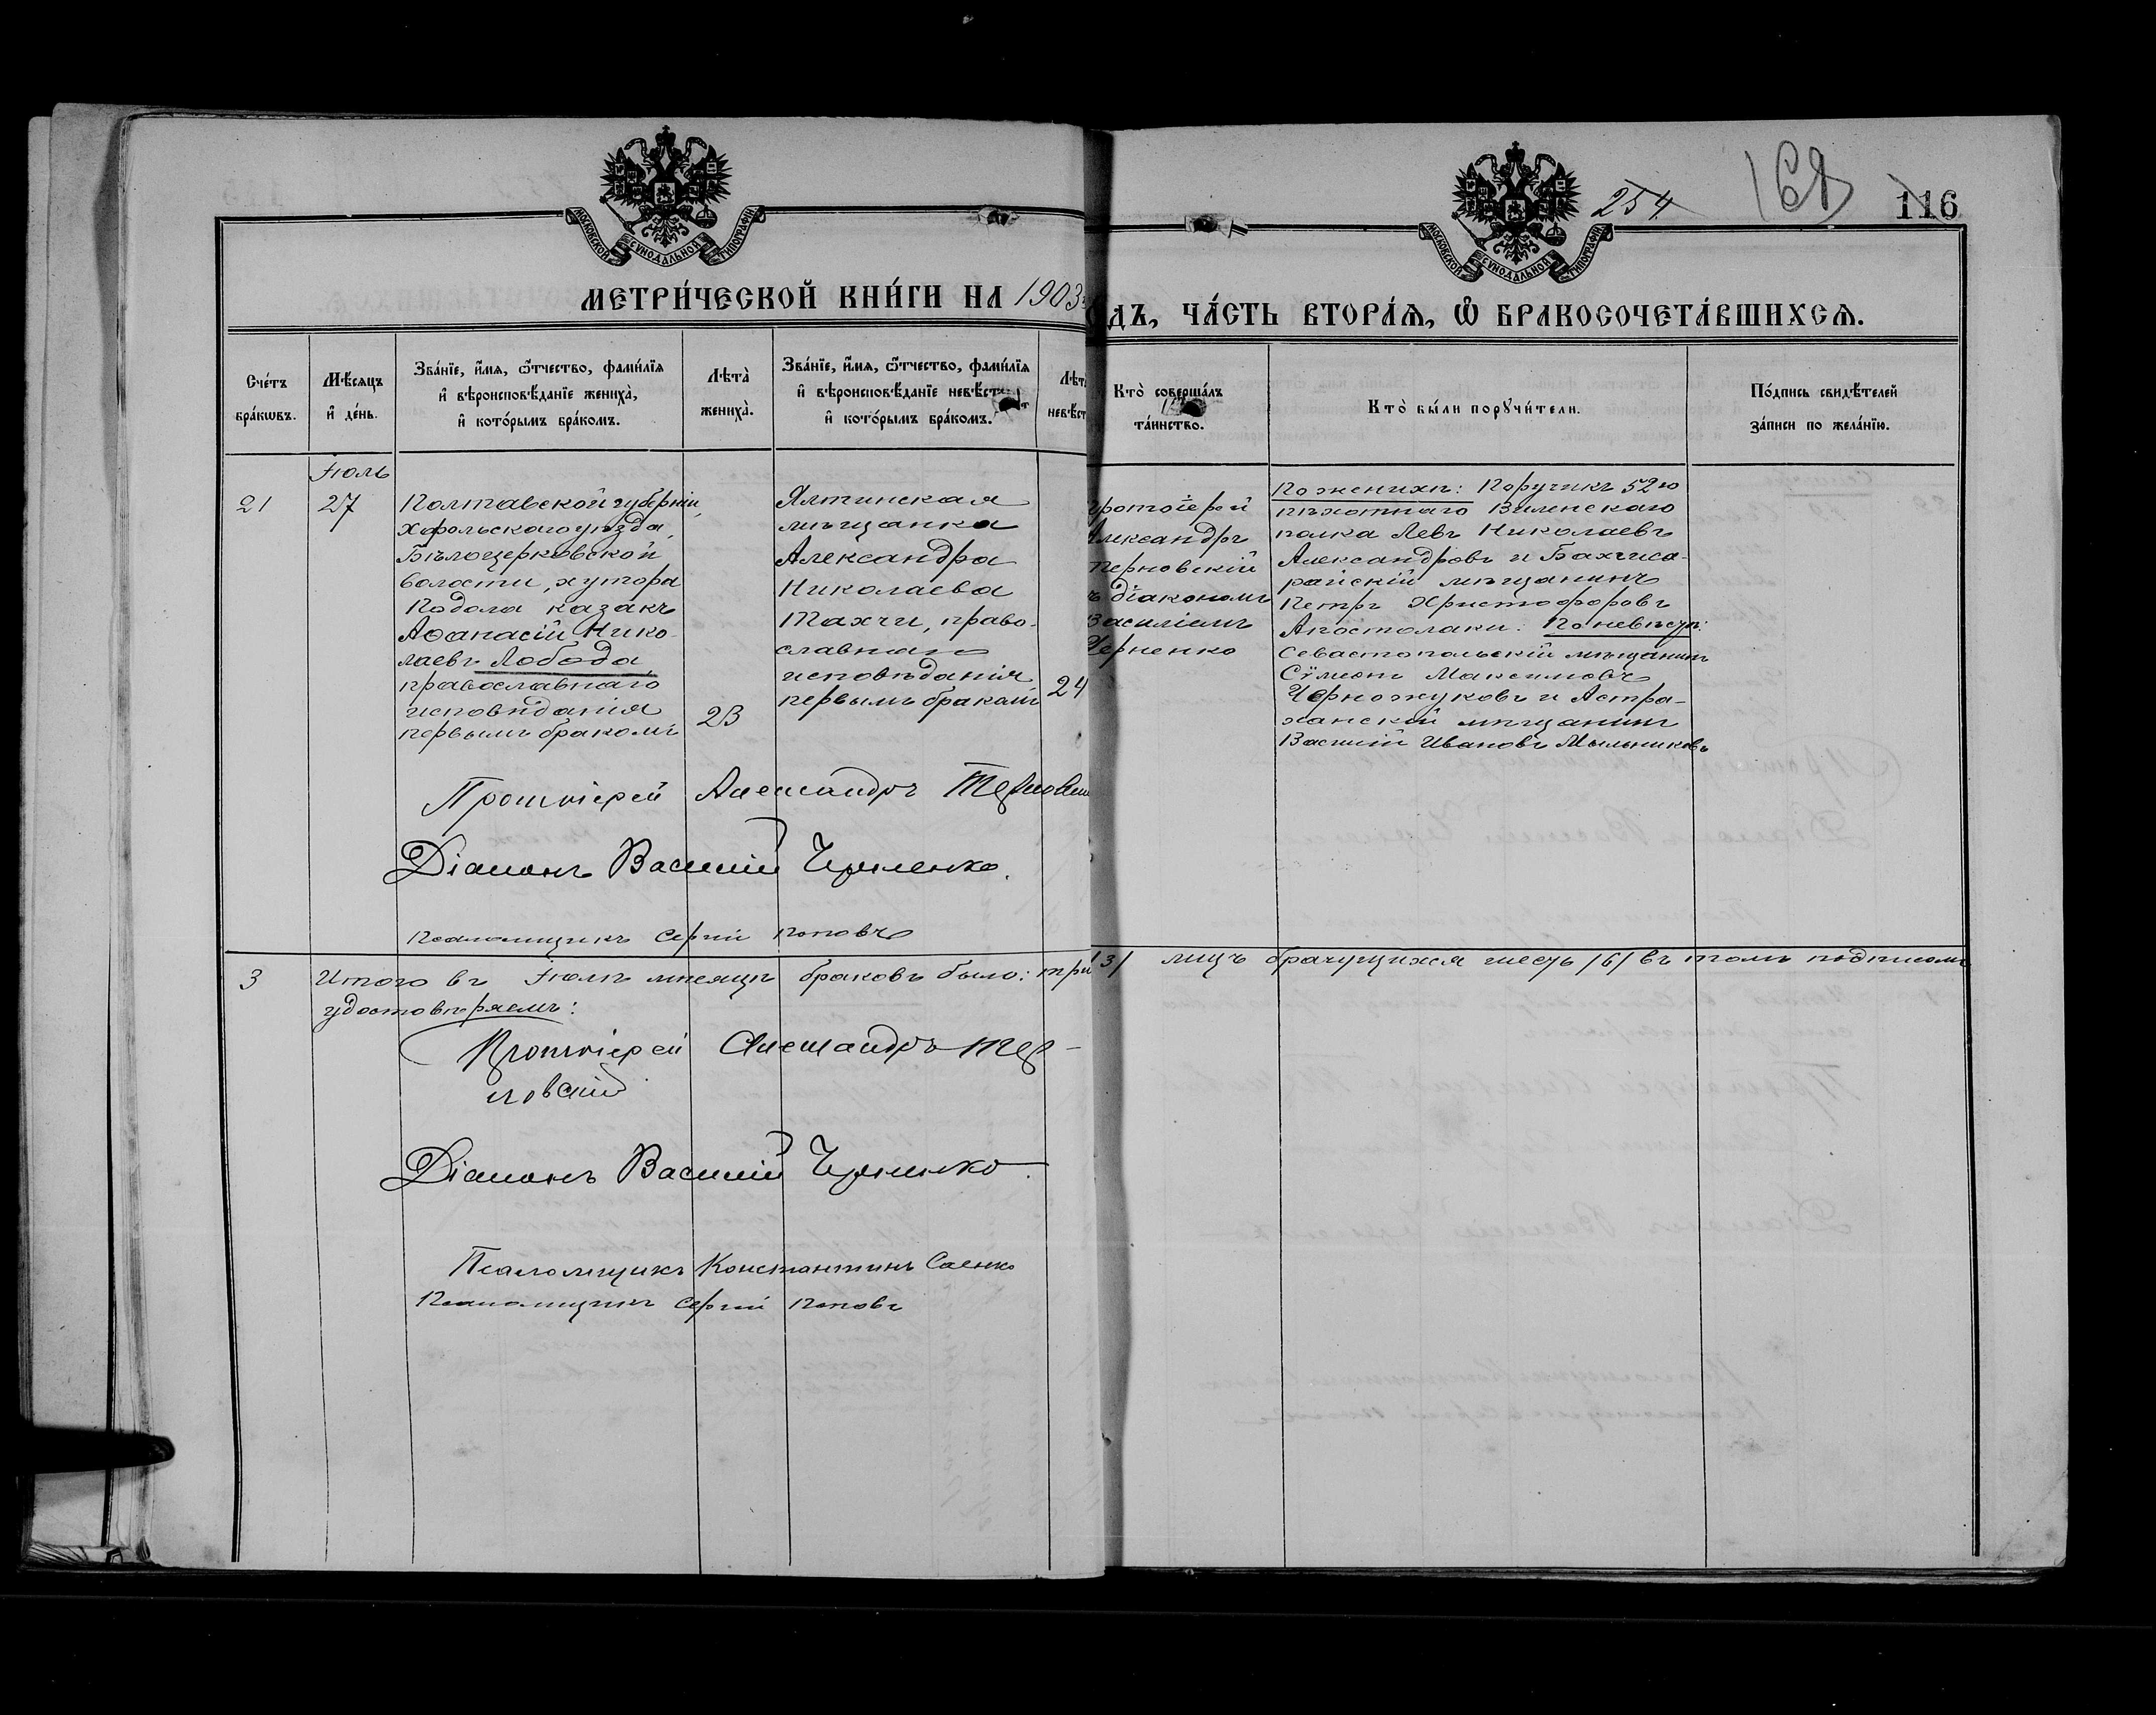 МОСКОВСКОЙ СѴНОДАЛЬНОЙ ТИПОГРАФІИ
МОСКОВСКОЙ СѴНОДАЛЬНОЙ ТИПОГРАФІИ
254
168
116
МЕТРИ́ЧЕСКОЙ КНИ́ГИ НА 1903
ДЪ, ЧА́СТЬ ВТОРА́Ѧ, Ѡ҆ БРАКОСОЧЕТА́ВШИХСѦ.
Сче́тъ
бра́кѡвъ.
Мѣ́сяцъ
и҆ де́нь.
Зва́нїе, и҆́мѧ, ѻ҆́тчество, фами́лїѧ
и҆ вѣроисповѣ́данїе жениха̀,
и҆ кото́рымъ бра́комъ.
Лѣта̀
жениха̀.
Зва́нїе, и҆́мѧ, ѻ҆́тчество, фами́лїѧ
и҆ вѣроисповѣ́данїе невѣ́сты
и҆ кото́рымъ бра́комъ.
Лѣта
невѣст
Кто̀ соверша́лъ
та́инство.
Кто̀ бы́ли порꙋчи́тели.
По́дпись свидѣ́телей
за́писи по жела́нїю.
Іюль
21
27
Полтавской губерніи,
Хорольскаго уѣзда,
Бѣлоцерковской
волости, хутора
Подола казакъ
Аѳанасій Нико-
лаевъ Лобода,
православнаго
исповѣданія
первымъ бракомъ
23
Ялтинская
мѣщанка
Александра
Николаева
Тахчи, право-
славнаго
исповѣданія
первымъ бракомъ
24
Протоіерей
Александръ
Терновскій
съ діакономъ
Василіемъ
Черненко
По женихѣ: Поручикъ 52го
пѣхотнаго Виленскаго
полка Левъ Николаевъ
Александровъ и Бахчиса-
райскій мѣщанинъ
Петръ Христофоровъ
Апостолаки. По невѣстѣ:
Севастопольскій мѣщанинъ
Сѵмеонъ Максимовъ
Черножуковъ и Астра-
ханскій мѣщанинъ
Василій Ивановъ Мыльниковъ
Протоіерей Александръ Терновскій
Діаконъ Василій Черненко.
Псаломщикъ Сергій Поповъ
3
Итого въ Іюлѣ мѣсяцѣ браковъ было: три /3/ лицъ брачущихся шесть /6/ въ томъ подписомъ
удостовѣряемъ:
Протоіерей Александръ Тер-
новскій
Діаконъ Василій Черненко.
Псаломщикъ Константинъ Саенко
Псаломщикъ Сергій Поповъ